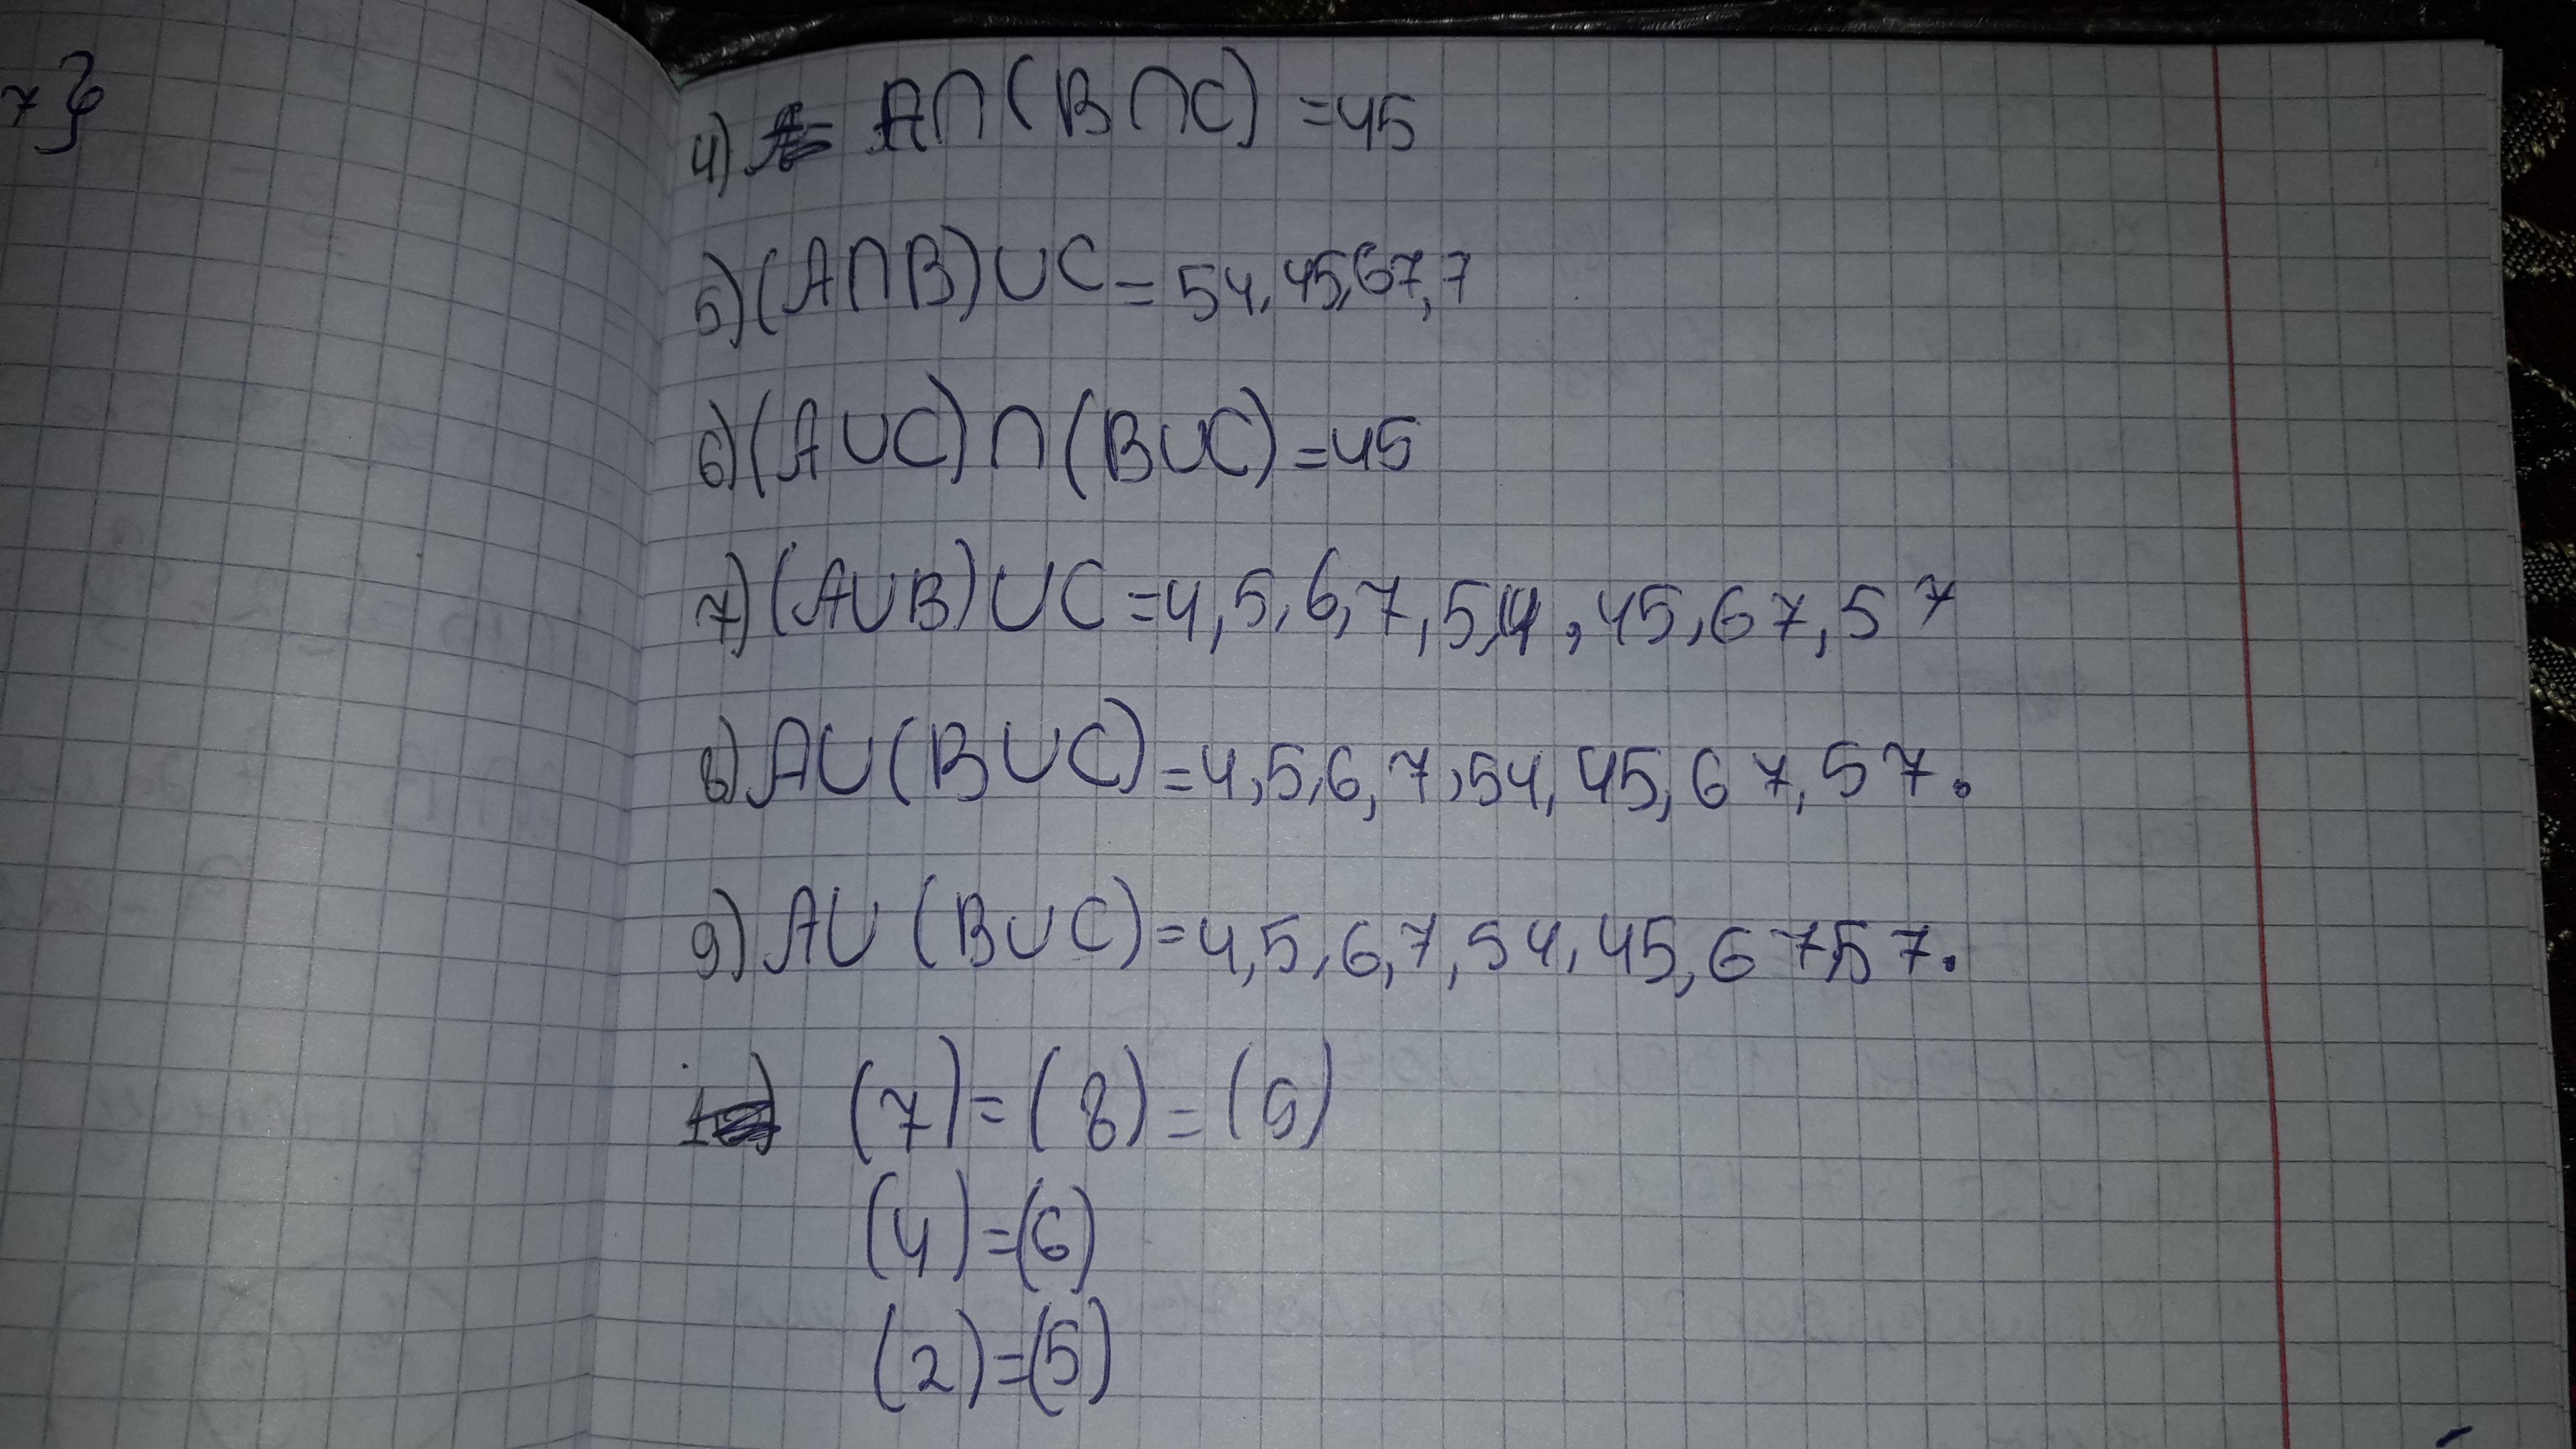 7}
4) A∩(B∩C) =45
5)(A∩B)∪C=54,45,67,7
6)(A∪C)∩(B∪C)=45
7)(A∪B)∪C=4,5,6,7,54,45,67,57
8)A∪(B∪C)=4,5,6,7,54,45,67,57.
9)A∪(B∪C)=4,5,6,7,54,45,67,57.
(7)=(8)=(9)
(4)=(6)
(2)=(5)